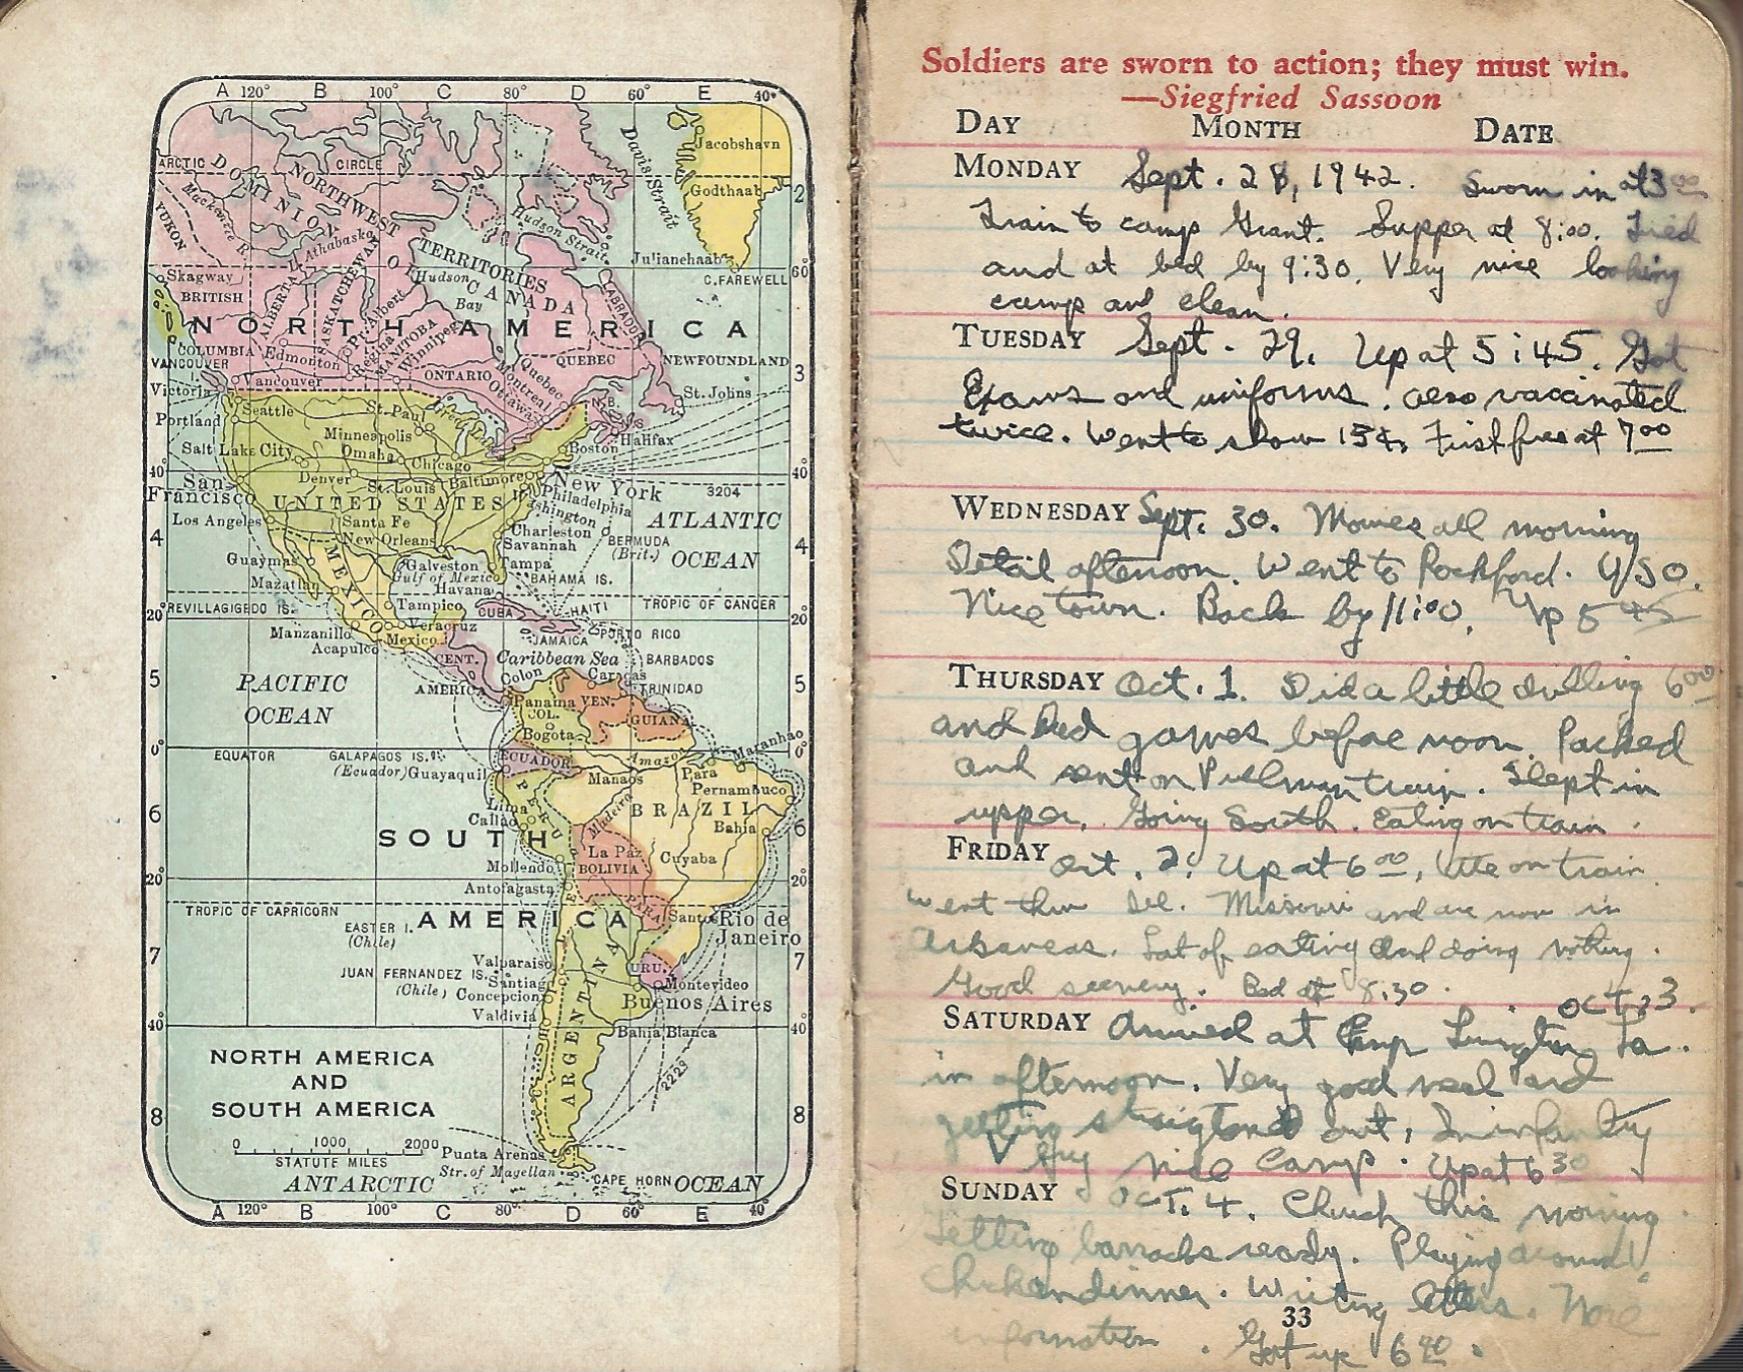 A 120° B 100° C 80° D 60° E 40°
Jacobshavn
Davis Strait
ARCTIC CIRCLE
DOMINION
NORTHWEST
Godthaab
2
Mackenzie R.
YUKON
Hudson Strait
L. Athabaska
TERRITORIES
Julianehaab
60
Skagway
OF
Hudson
Bay
CANADA
C. FAREWELL
BRITISH
ALBERTA
SASKATCHEWAN
Pr. Albert
LABRADOR
NORTH AMERICA
COLUMBIA
Edmonton
Regina
MANITOBA
Winnipeg
QUEBEC
NEWFOUNDLAND
VANCOUVER
Vancouver
ONTARIO
Quebec
Montreal
Ottawa
3
Victoria
St. Johns
Seattle
St. Paul
Great Lakes
N.B.
N.S.
Portland
Minneapolis
Halifax
Salt Lake City
Omaha
Chicago
Boston
40° Denver St. Louis Baltimore New York 40°
San Francisco
UNITED STATES
Philadelphia
3204
Washington
ATLANTIC
OCEAN
Los Angeles
Santa Fe
Charleston
BERMUDA
(Brit.)
4
New Orleans
Savannah
4
Guaymas
Galveston
Tampa
MEXICO
Gulf of Mexico
BAHAMA IS.
Mazatlan
Havana
REVILLAGIGEDO IS.
Tampico
CUBA
HAITI
TROPIC OF CANCER
20°
20°
Manzanillo
Veracruz
JAMAICA
PORTO RICO
Acapulco
Mexico
CENT.
AMERICA
Caribbean Sea
BARBADOS
5
PACIFIC
OCEAN
Colon
Caracas
TRINIDAD
5
Panama
VEN.
COL.
GUIANA
Bogota
Maranhao
0°
0°
EQUATOR
GALAPAGOS IS.
(Ecuador)
ECUADOR
Guayaquil
Amazon
Manaos
Para
Pernambuco
PERU
Lima
Callao
Madeira
BRAZIL
6
Bahia
6
SOUTH
La Paz
BOLIVIA
Cuyaba
Mollendo
20°
Antofagasta
20°
TROPIC OF CAPRICORN
PARA.
EASTER I.
(Chile)
AMERICA
Santos
Rio de
Janeiro
7
Valparaiso
URU.
7
JUAN FERNANDEZ IS.
(Chile)
Santiago
Montevideo
Concepcion
Buenos Aires
Valdivia
40°
ARGENTINA
CHILE
Bahia Blanca
40°
NORTH AMERICA
AND
SOUTH AMERICA
2229
8
8
0 1000 2000
STATUTE MILES
Punta Arenas
Str. of Magellan
CAPE HORN
ANTARCTIC OCEAN
A 120° B 100° C 80° D 60° E 40°
Soldiers are sworn to action; they must win.
—Siegfried Sassoon
DAY MONTH DATE
MONDAY Sept. 28, 1942. Sworn in at 3 00
Train to camp Grant. Supper at 8:00. Tired
and at bed by 9:30. Very nice looking
camp and clean.
TUESDAY Sept. 29. Up at 5:45. Got
Exams and uniforms. also vaccinated
twice. Went to show 15¢. First free at 7 00
WEDNESDAY Sept. 30. Movies all morning
Detail afternoon. Went to Rockford. USO.
Nice town. Back by 11:00. Up 5 45
THURSDAY Oct. 1. Did a little drilling 6 00
and games before noon. Packed
and went on Pullman train. Slept in
upper. Going South. Eating on train.
FRIDAY Oct. 2. Up at 6 00, Ate on train.
went thru Ill. Missouri and are now in
Arkansas. Lot of eating and doing nothing.
Good scenery. Bed at 8:30.
OCT. 3.
SATURDAY Arrived at Camp Livingston La.
in afternoon. Very good meal and
getting straightened out, In infantry
Very nice Camp. Up at 6 30
SUNDAY OCT. 4. Church this morning.
Getting barracks ready. Playing around.
Chicken dinner. Writing letters. More
information. Got up 6
33